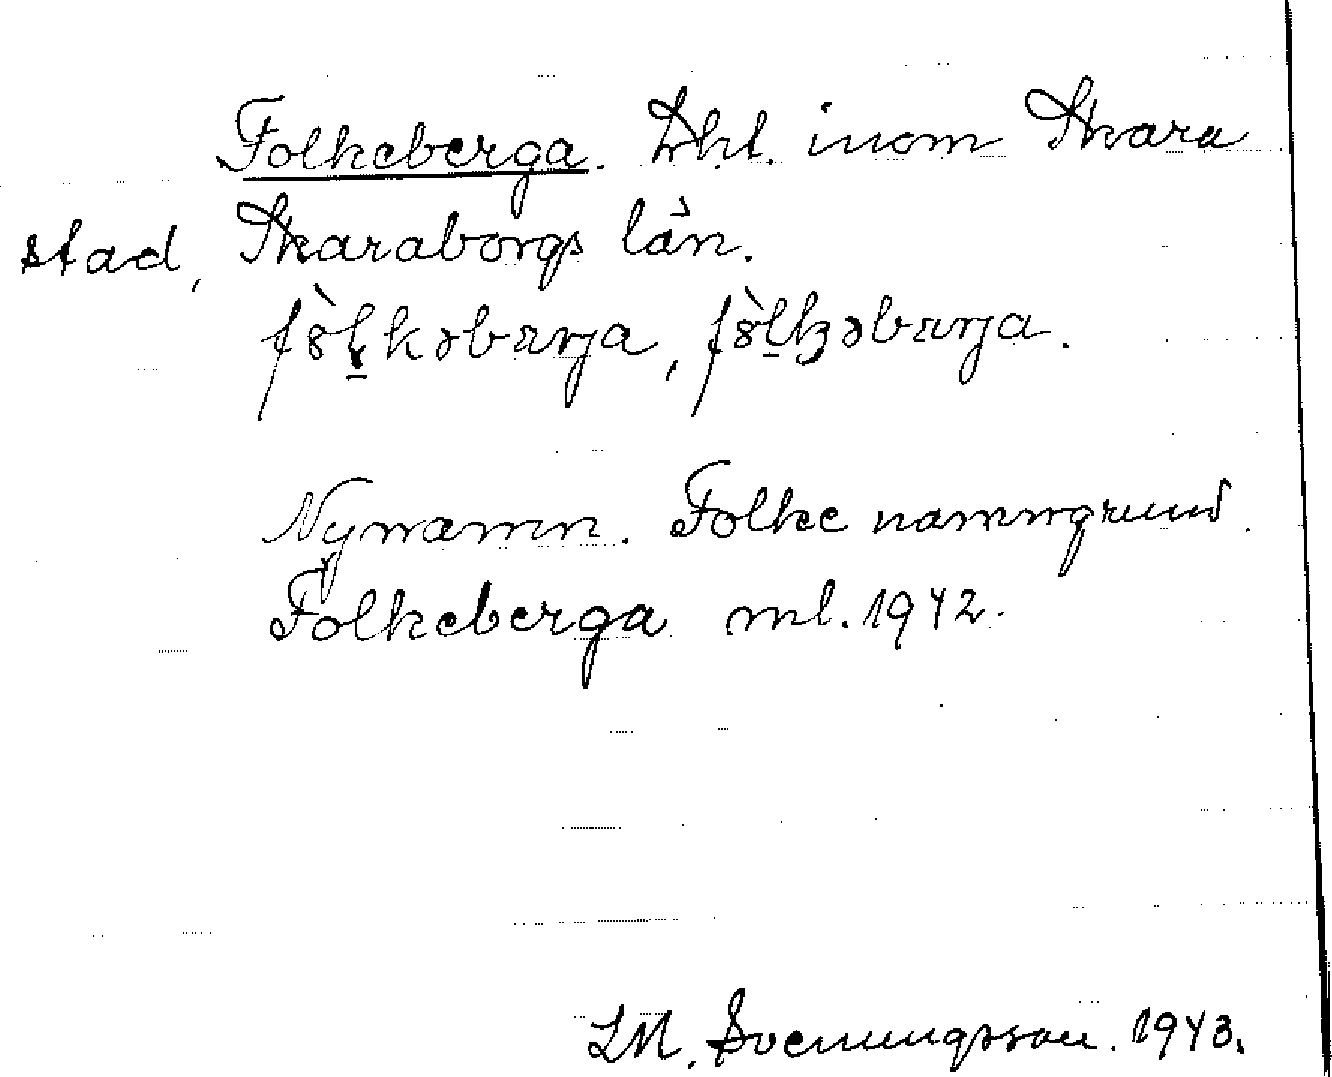 Folkeberga. Lht. inom Skara
stad, Skaraborgs län.
fòlkəbærja, fòlkəbærja.
Nynamn. Folke namngrund.
Folkeberga ml. 1942.
S.M. Svenungsson. 1943.